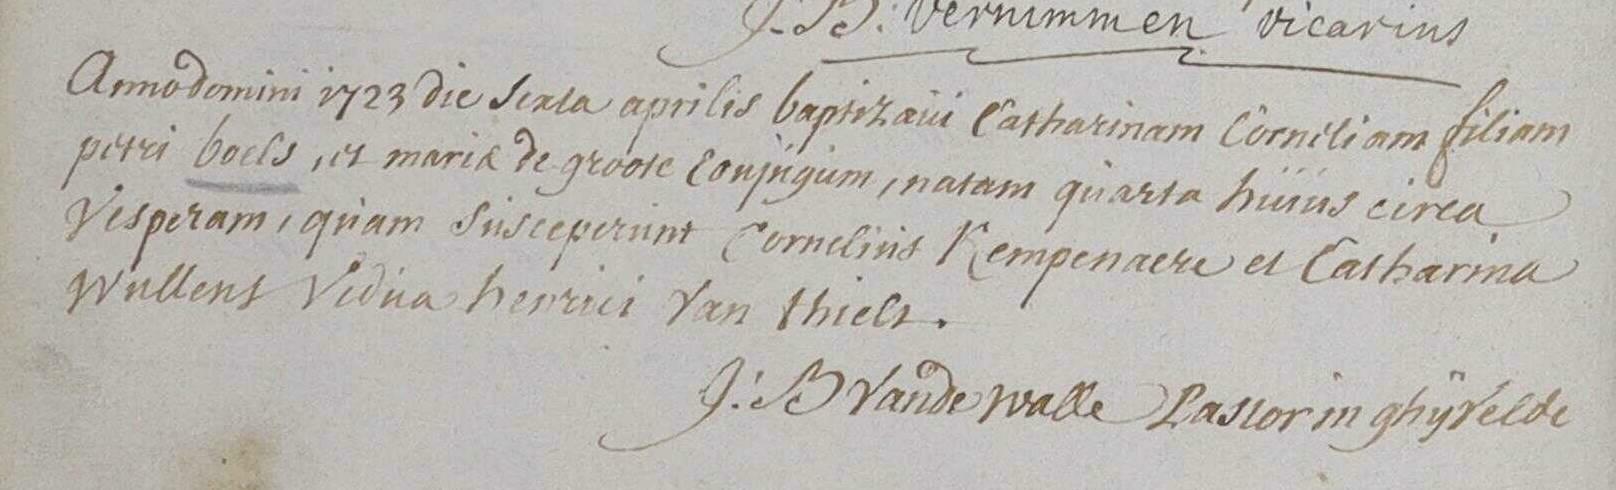 J: B: Vernimmen vicarius
Anno domini 1723 die sexta aprilis baptizavi Catharinam Corneliam filiam
petri boels, et mariæ de groote Conjugum, natam quarta huius circa
Vesperam, quam Susceperunt Cornelius Kempenaere et Catharina
Wullens Vidua henrici Van thielt.
J: B Vande walle Pastor in ghÿvelde